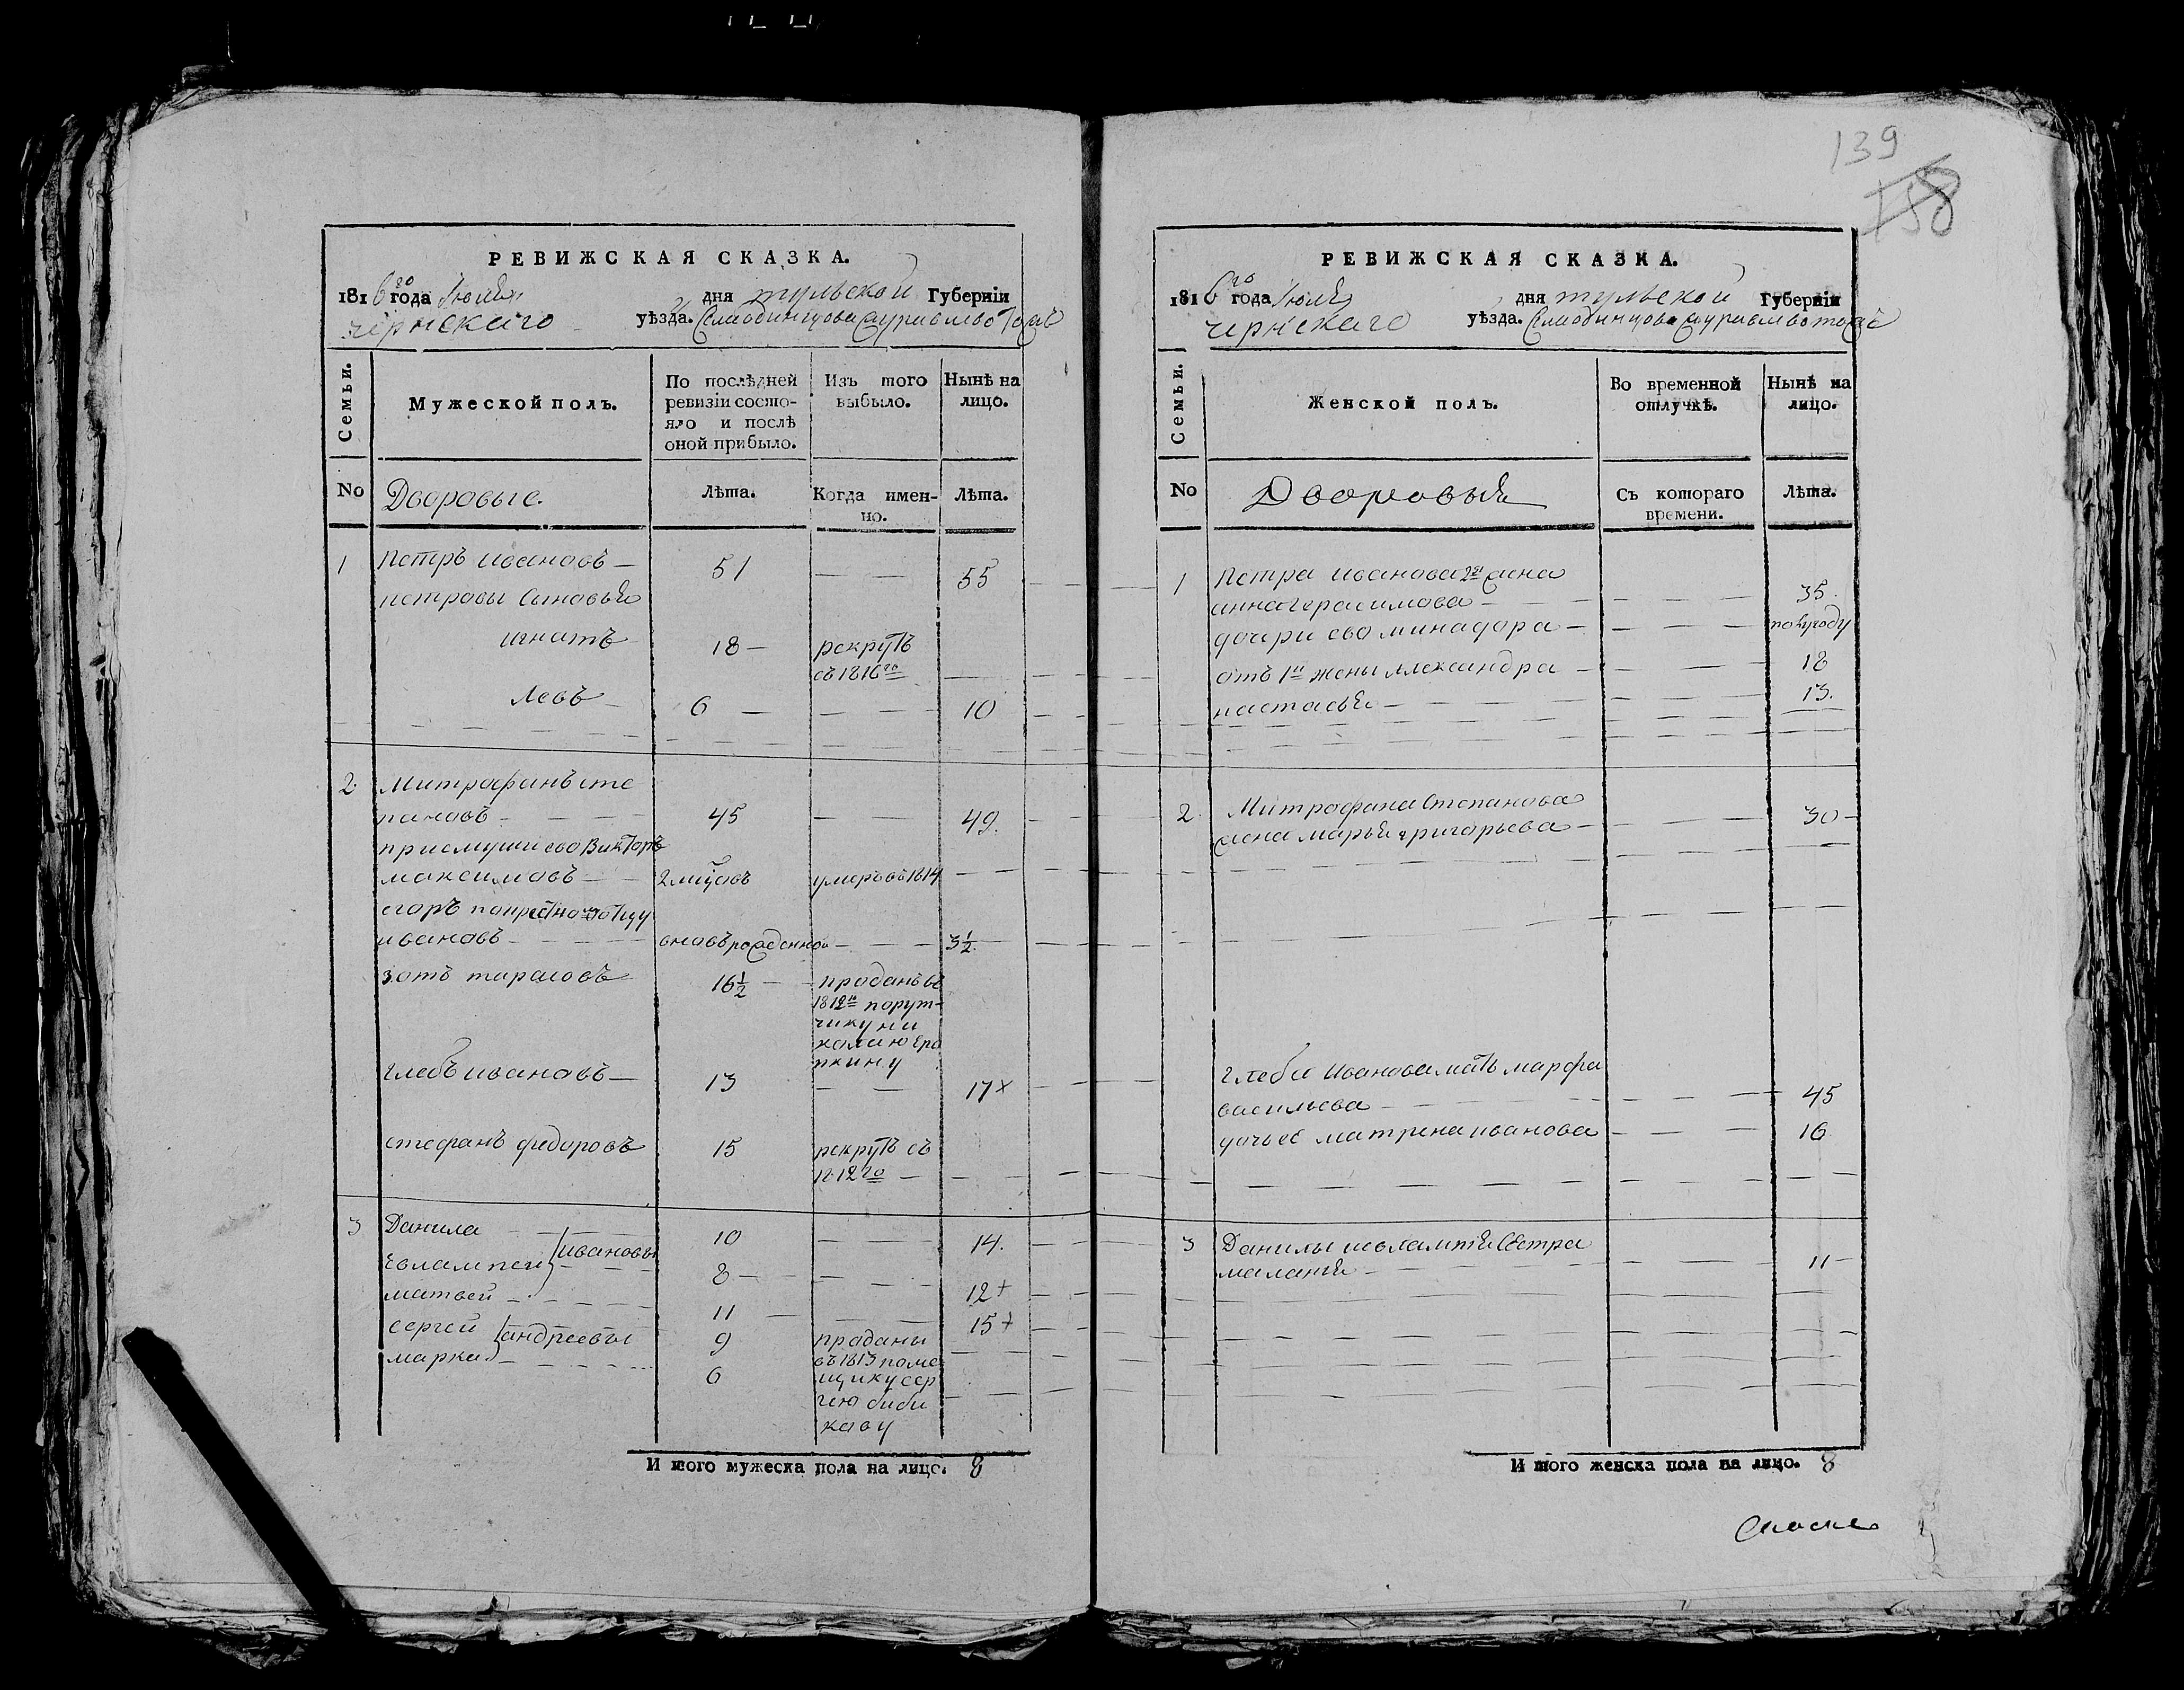 139
158
РЕВИЖСКАЯ СКАЗКА.
1816го года Июля дня тульской Губерніи
чернскаго уѣзда.
Семьи.
Мужеской полъ.
По послѣдней
ревизіи состо-
яло и послѣ
оной прибыло.
Изъ того
выбыло.
Нынѣ на
лицо.
No
Дворовые.
Лѣта.
Когда имен-
но.
Лѣта.
1 Петръ ивановъ — 51 — — 55
петровы Сыновья
игнатъ 18 — рекрутъ
съ 1816го
левъ 6 — — — 10
2 Митрофанъ сте
пановъ 45 — — 49.
приемыши ево Викторъ
максимовъ 2 мцовъ умеръ въ 1814
егоръ
ивановъ вновь рожденной 3 1/2
зотъ тарасовъ 16 1/2 — проданъ въ
порут-
чику ни
колаю ера
пкину
глебъ ивановъ — 13 — — 17 х
стефанъ федоровъ 15 рекрутъ съ
1812го —
3 Данила 10 14.
евлампеи ивановы 8 — 12 +
матвей 11 — 15 +
сергей андреевы 9 проданы
марка 6 въ 1813 поме
щику сер
гею биби
кову
И того мужеска пола на лицо. 8
РЕВИЖСКАЯ СКАЗКА.
1816го года Июля дня тульской Губерніи
чернскаго уѣзда.
Семьи.
Женской полъ.
Во временной
отлучкѣ.
Нынѣ на
лицо.
No
Дворовыя
Съ котораго
времени.
Лѣта.
1 Петра иванова 2я жена
анна герасимова — 35.
дочери ево минадора — полугоду
отъ 1й жены александра — 18
настасья — 13.
2. Митрофана Степанова
жена марья григорьева — 30 —
глеба Иванова мать марфа
васильева — 45
дочь ее матрена иванова — 16
3 Данилы и евлампия Сестра
маланья — 11 —
И того женска пола на лицо. 8